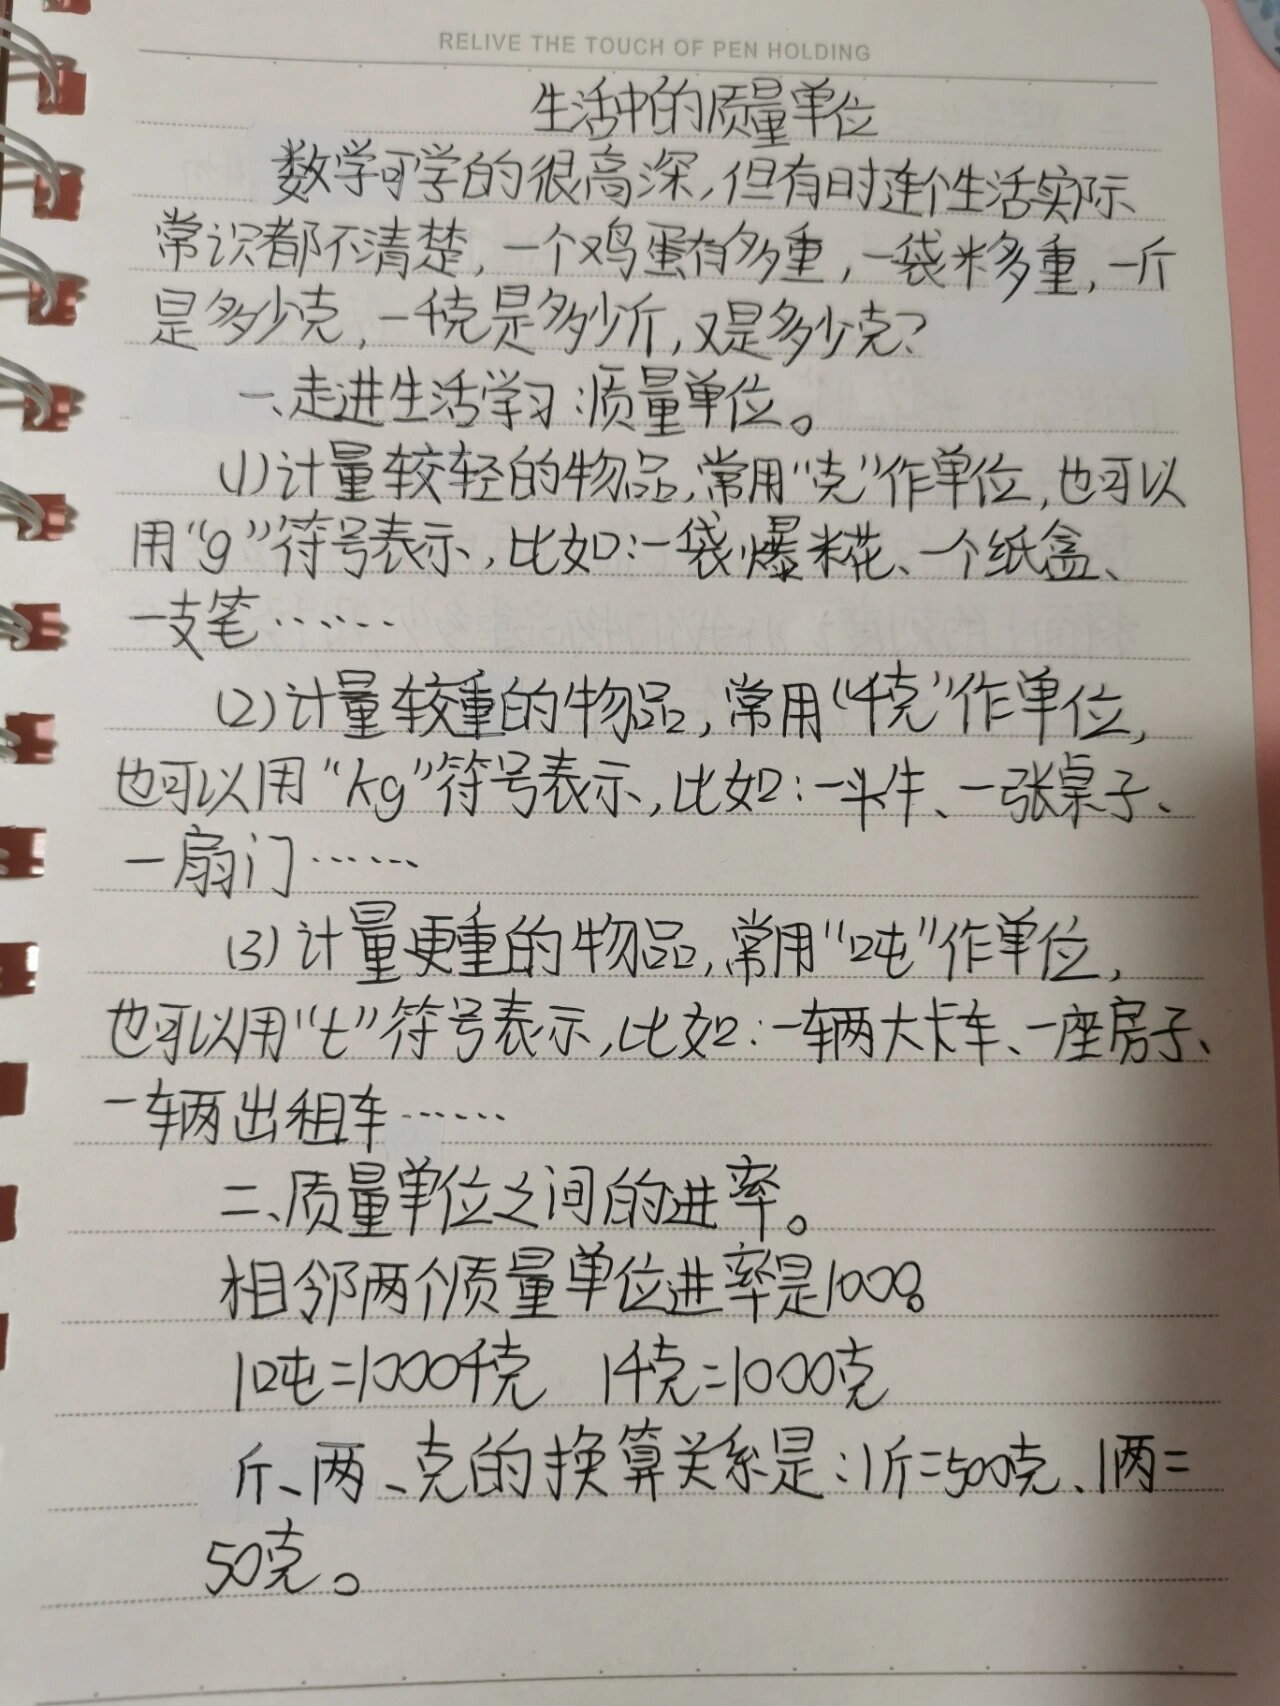 RELIVE THE TOUCH OF PEN HOLDING
生活中的质量单位
数学可学的很高深,但有时连个生活实际
常识都不清楚,一个鸡蛋有多重,一袋米多重,一斤
是多少克,一千克是多少斤,又是多少克?
一、走进生活学习:质量单位。
(1)计量较轻的物品,常用“克”作单位,也可以
用“g”符号表示,比如:一袋爆米花、一个纸盒、
一支笔……
(2)计量较重的物品,常用“千克”作单位,
也可以用“kg”符号表示,比如:一头牛、一张桌子、
一扇门……
(3)计量更重的物品,常用“吨”作单位,
也可以用“t”符号表示,比如:一辆大卡车、一座房子、
一辆出租车……
二、质量单位之间的进率。
相邻两个质量单位进率是1000。
1吨=1000千克 1千克=1000克
斤、两、克的换算关系是:1斤=500克、1两=
50克。